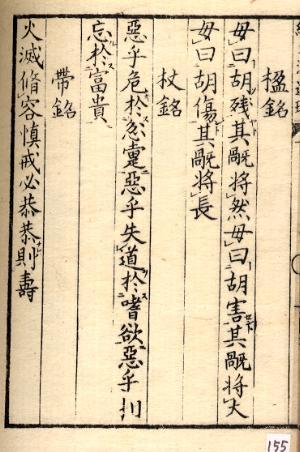 楹銘
毋曰胡残其禍將然毋曰胡害其禍將大
毋曰胡傷其禍將長
杖銘
惡乎危於忿疐惡乎失道於嗜欲惡乎相
忘於富貴
帶銘
火滅脩容慎戒必恭恭則壽
155